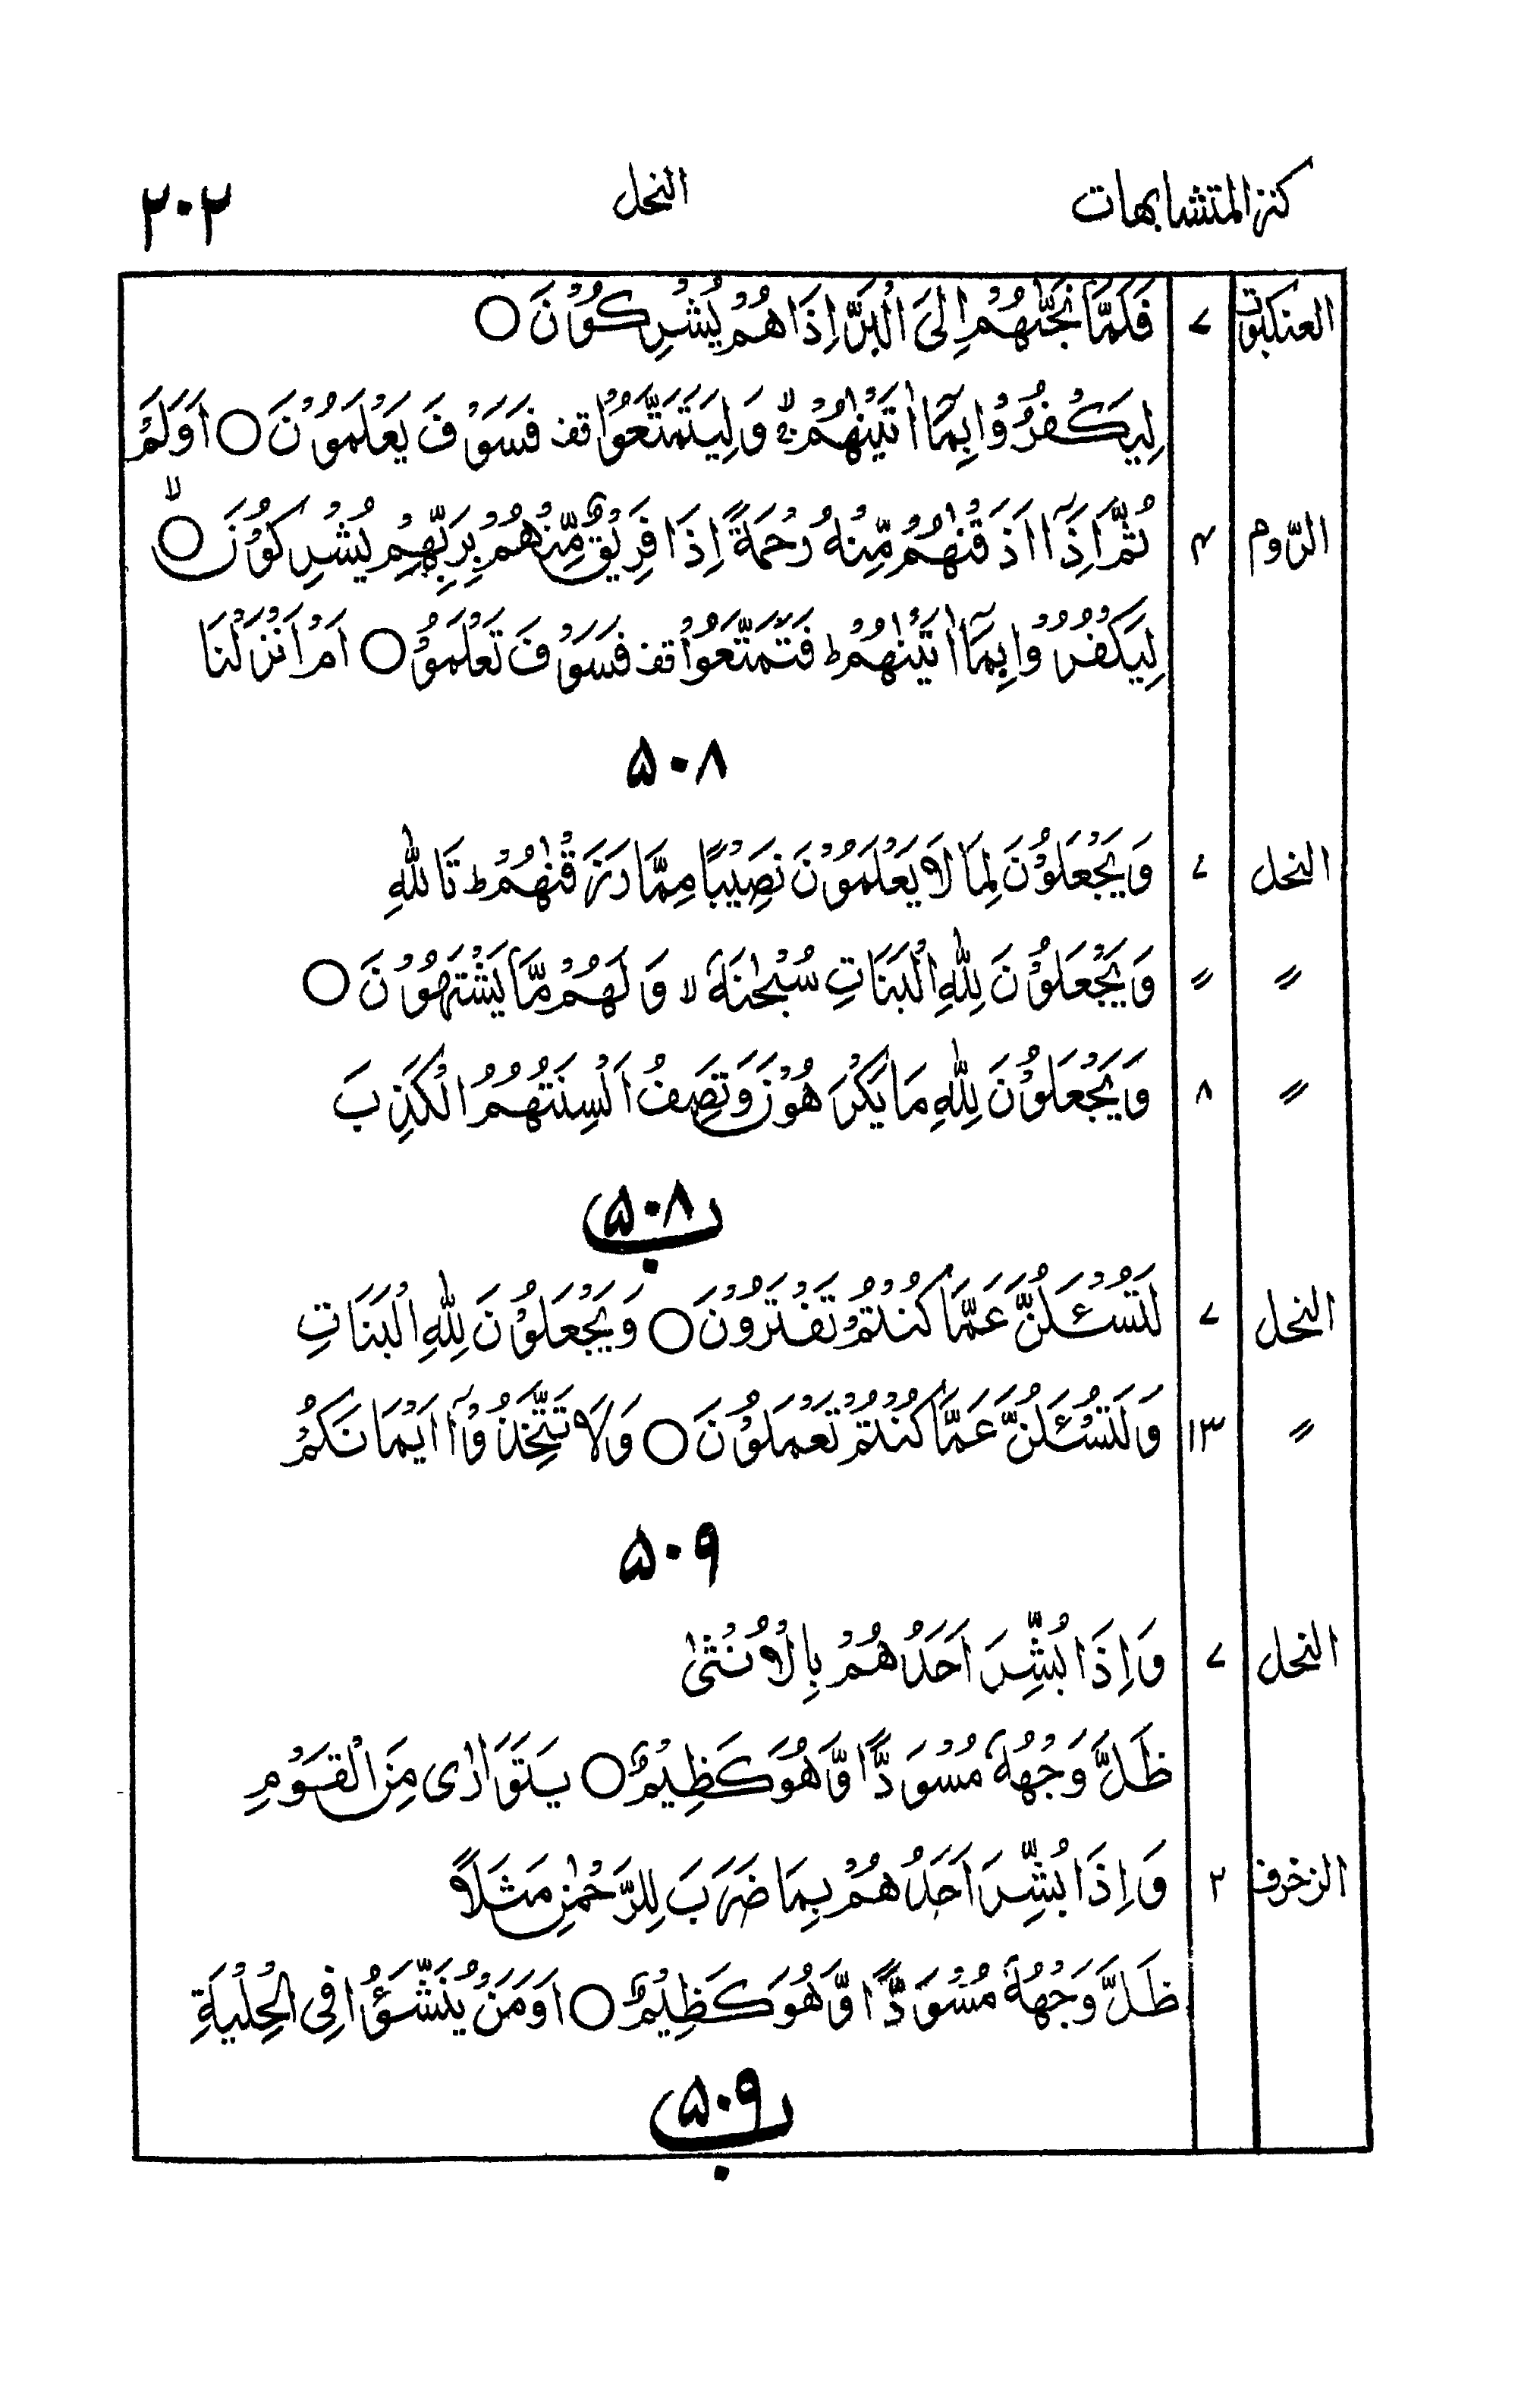 كنز المتشابهات النحل ٢٠٢
العنكبوت ٧ فَلَمَّا نَجّٰىهُمْ اِلَى الْبَرِّ اِذَا هُمْ يُشْرِكُوْنَ ○
لِيَكْفُرُوْا بِمَآ اٰتَيْنٰهُمْ ۚۙ وَ لِيَتَمَتَّعُوْا قف فَسَوْفَ يَعْلَمُوْنَ ○ اَوَلَمْ
الرّوم ۴ ثُمَّ اِذَآ اَذَاقَهُمْ مِّنْهُ رَحْمَةً اِذَا فَرِيْقٌ مِّنْهُمْ بِرَبِّهِمْ يُشْرِكُوْنَ ○ ۙ
لِيَكْفُرُوْا بِمَآ اٰتَيْنٰهُمْ ط فَتَمَتَّعُوْا قف فَسَوْفَ تَعْلَمُوْ ○ اَمْ اَنْزَلْنَا
۵۰۸
النحل ٧ وَ يَجْعَلُوْنَ لِمَا لَا يَعْلَمُوْنَ نَصِيْبًا مِمَّا رَزَقْنٰهُمْ ط تَاللّٰهِ
〃 〃 وَ يَجْعَلُوْنَ لِلّٰهِ الْبَنَاتِ سُبْحٰنَهٗ لا وَ لَهُمْ مَّا يَشْتَهُوْنَ ○
〃 ٨ وَ يَجْعَلُوْنَ لِلّٰهِ مَا يَكْرَهُوْنَ وَ تَصِفُ اَلْسِنَتُهُمُ الْكَذِبَ
۵۰۸ ب
النحل ٧ لَتُسْـَٔلُنَّ عَمَّا كُنْتُمْ تَفْتَرُوْنَ ○ وَ يَجْعَلُوْنَ لِلّٰهِ الْبَنَاتِ
〃 ١٣ وَ لَتُسْـَٔلُنَّ عَمَّا كُنْتُمْ تَعْمَلُوْنَ ○ وَ لَا تَتَّخِذُوْٓا اَيْمَانَكُمْ
۵۰۹
النحل ٧ وَ اِذَا بُشِّرَ اَحَدُهُمْ بِالْاُنْثٰى
ظَلَّ وَجْهُهٗ مُسْوَدًّا وَّ هُوَ كَظِيْمٌ ○ يَتَوَارٰى مِنَ الْقَوْمِ
الزخرف ٢ وَ اِذَا بُشِّرَ اَحَدُهُمْ بِمَا ضَرَبَ لِلرَّحْمٰنِ مَثَلًا
ظَلَّ وَجْهُهٗ مُسْوَدًّا وَّ هُوَ كَظِيْمٌ ○ اَوَ مَنْ يُّنَشَّؤُا فِى الْحِلْيَةِ
۵۰۹ ب